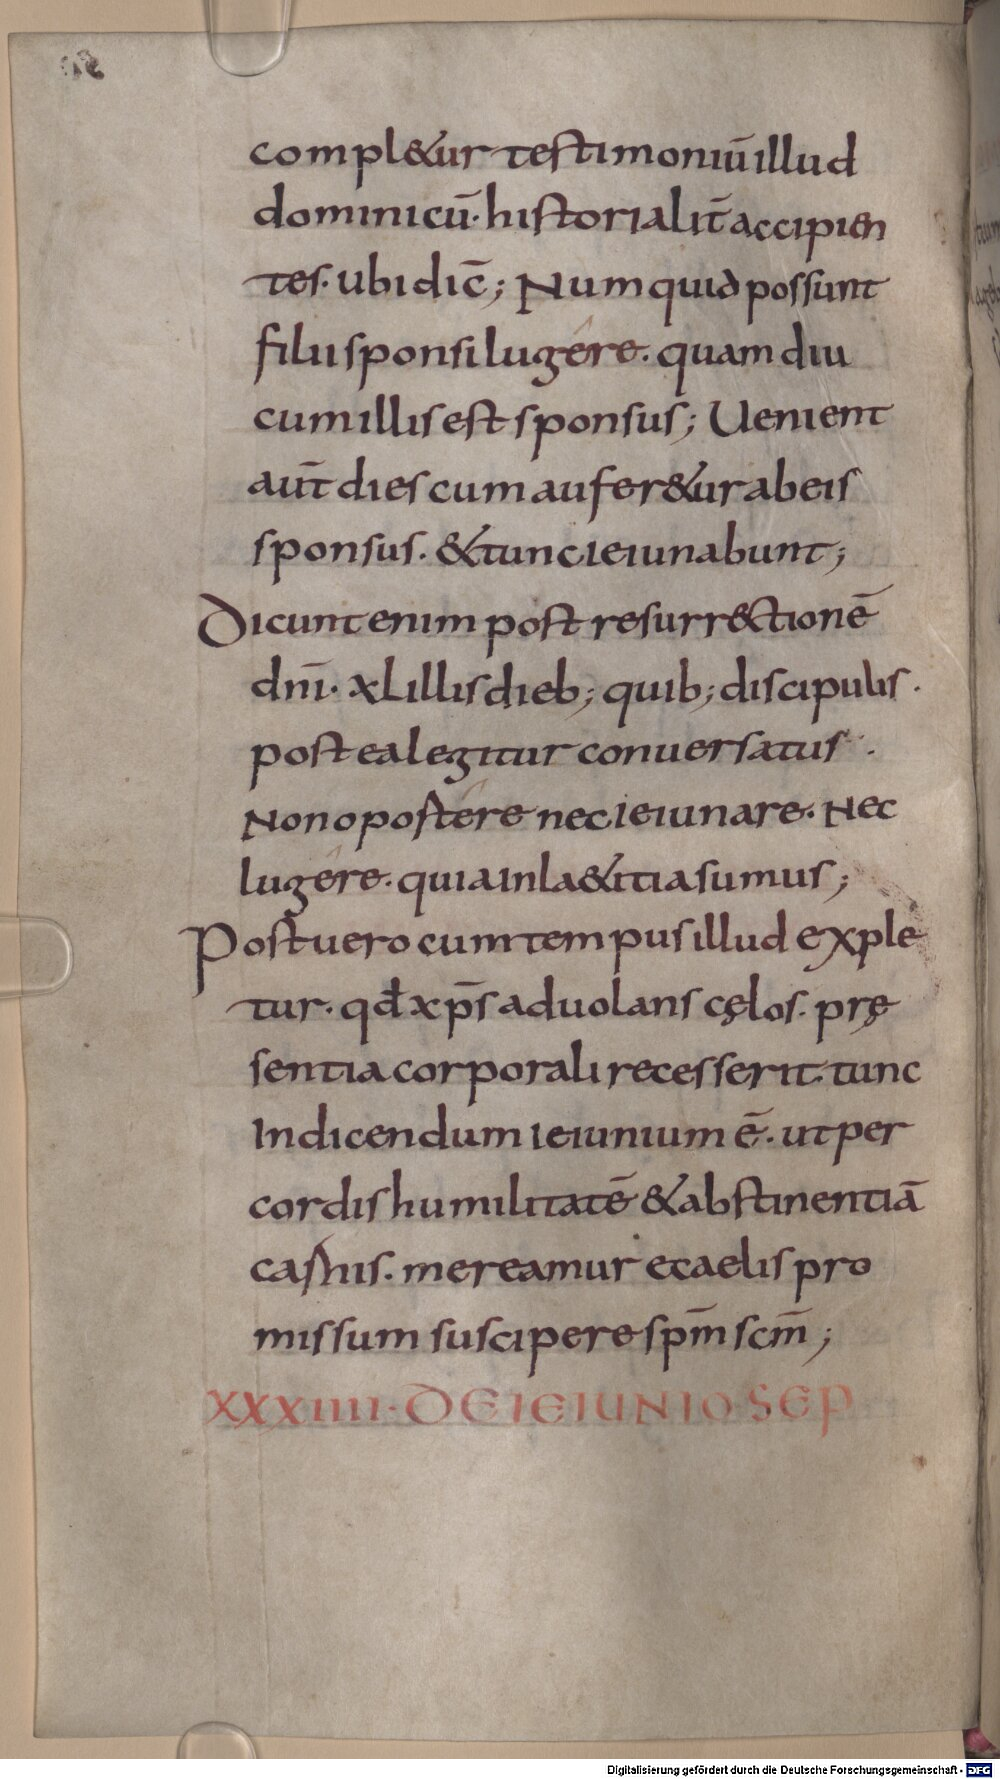 compl&ur testimoniū illud
dominicū· historialit̄ accipien
tes· ubi dic̄; Numquid possunt
filii sponsi lugêre· quamdiu
cum illis est sponsus; Uenient
aut̄ dies cum aufer&ur ab eis
sponsus· & tunc ieiunabunt;
Dicunt enim post resurr&tionē
dn̄i· xL illis dieb; quib; discipulis·
post ea legitur conuersatus·
Non opostêre nec ieiunare· Nec
lugêre· quia in la&itia sumus;
Post uero cum tempus illud exple
tur· qđ xp̄s aduolans cęlos· prę
sentia corporali recesserit· tunc
Indicendum ieiunium ē· ut per
cordis humilitatē & abstinentiā
carnis· mereamur e caelis pro
missum suscipere sp̄m sc̄m;
XXXIIII· DE IEIUNIO SEP
Digitalisierung gefördert durch die Deutsche Forschungsgemeinschaft - DFG